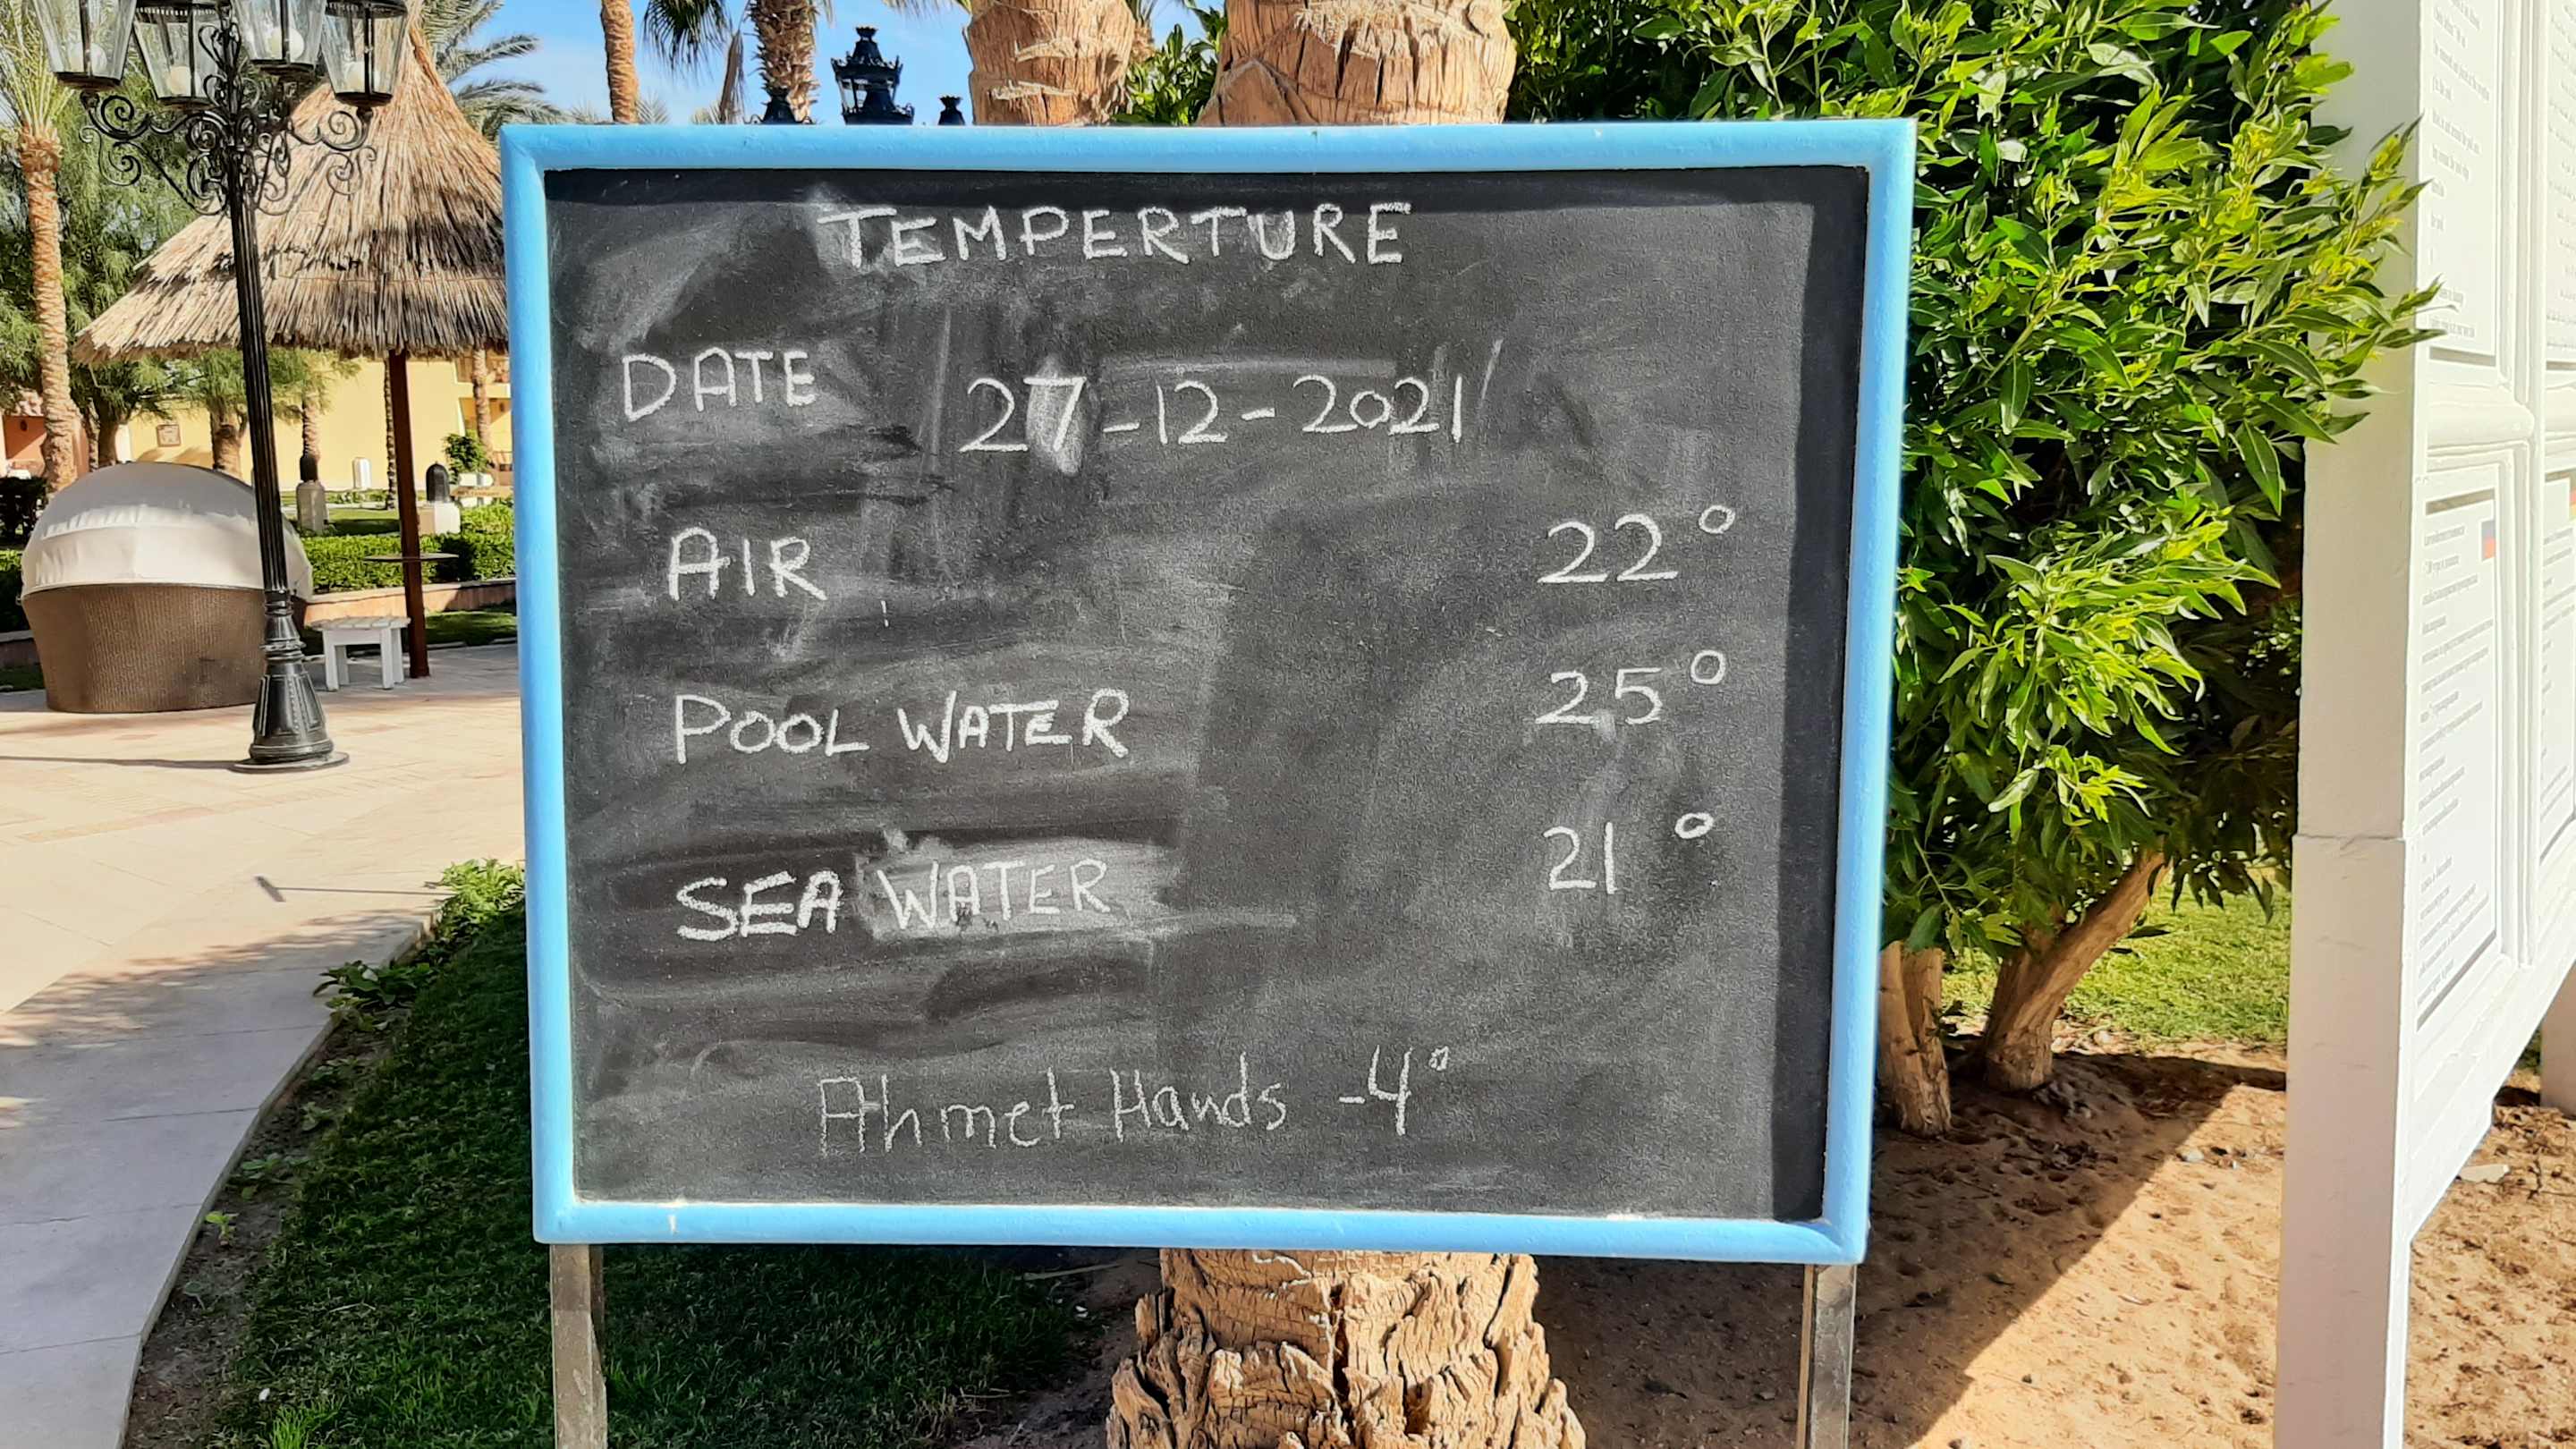 TEMPERTURE
DATE 27-12-2021
AIR 22°
POOL WATER 25°
SEA WATER 21°
Ahmet Hands -4°